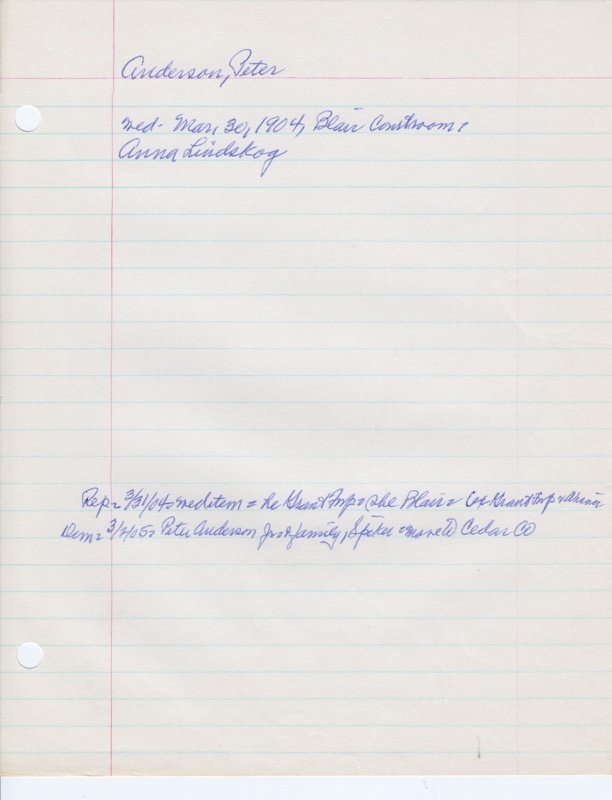 Anderson, Peter
Wed- Mar, 30, 1904, Blair Courtroom,
Anna Lindskog
Rep= 3/31/04= wed item = he Grant Twp = she Blair = Grant Twp
Dem= 3/2/05= Peter Anderson Jr & family, Spiker = move to Cedar Co